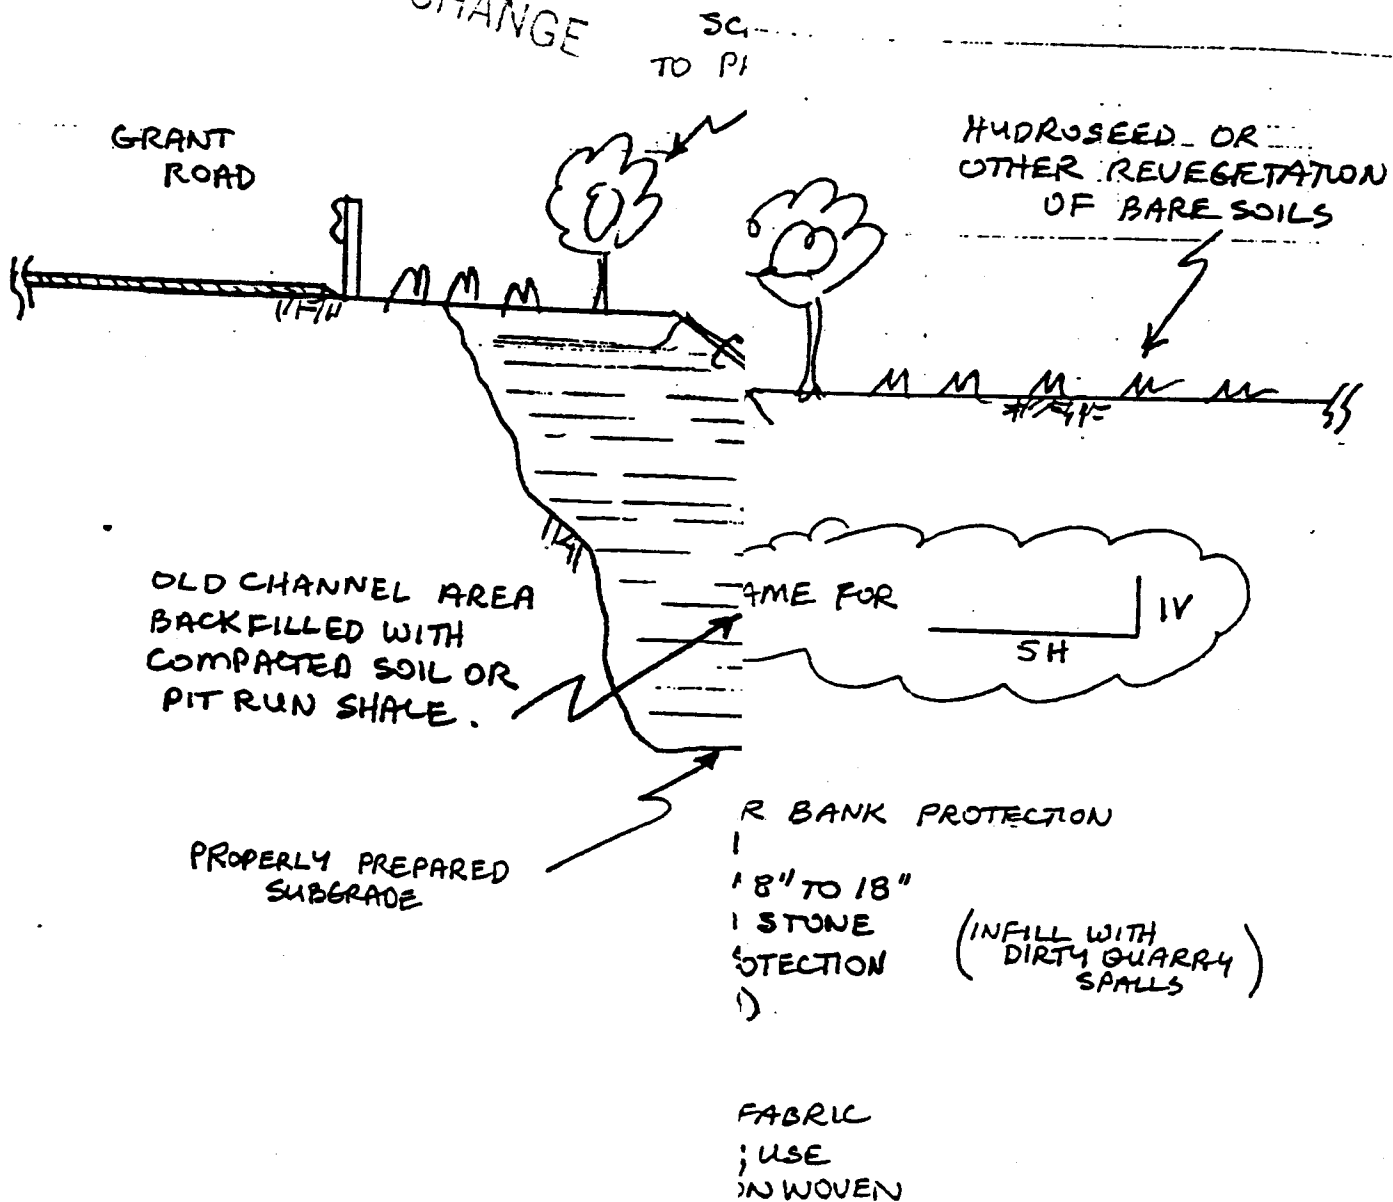 CHANGE
TO
GRANT
ROAD
HUDROSEED OR
OTHER REVEGETATION
OF BARE SOILS
OLD CHANNEL AREA
BACKFILLED WITH
COMPACTED SOIL OR
PIT RUN SHALE.
AME FOR
1V
5H
PROPERLY PREPARED
SUBGRADE
R BANK PROTECTION
8" TO 18"
STONE
OTECTION
(INFILL WITH
DIRTY QUARRY
SPALLS)
FABRIC
; USE
ON WOVEN